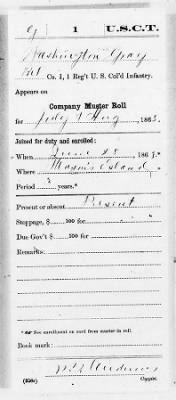 G | 1 | U.S.C.T.
Washington Gray
Pvt., Co. I, 1 Reg't U. S. Col'd Infantry.
Appears on
Company Muster Roll
for July & Aug, 1863.
Joined for duty and enrolled:
When June 28, 1863.*
Where Mason's Island
Period 3 years.*
Present or absent Present
Stoppage, $ 100 for
Due Gov't $ 100 for
Remarks:
* See enrollment on card from muster-in roll.
Book mark:
Andrews
(358c) Copyist.